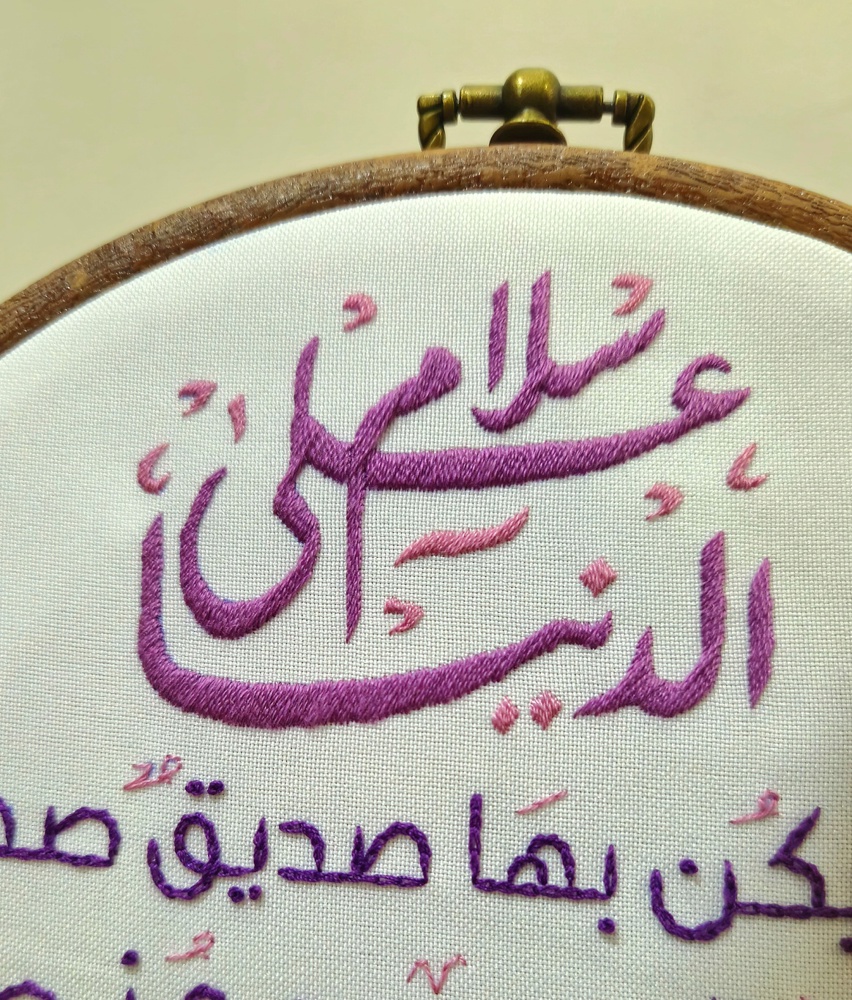 سلام على
الدنيا
يكُن بهَا صديقٌ